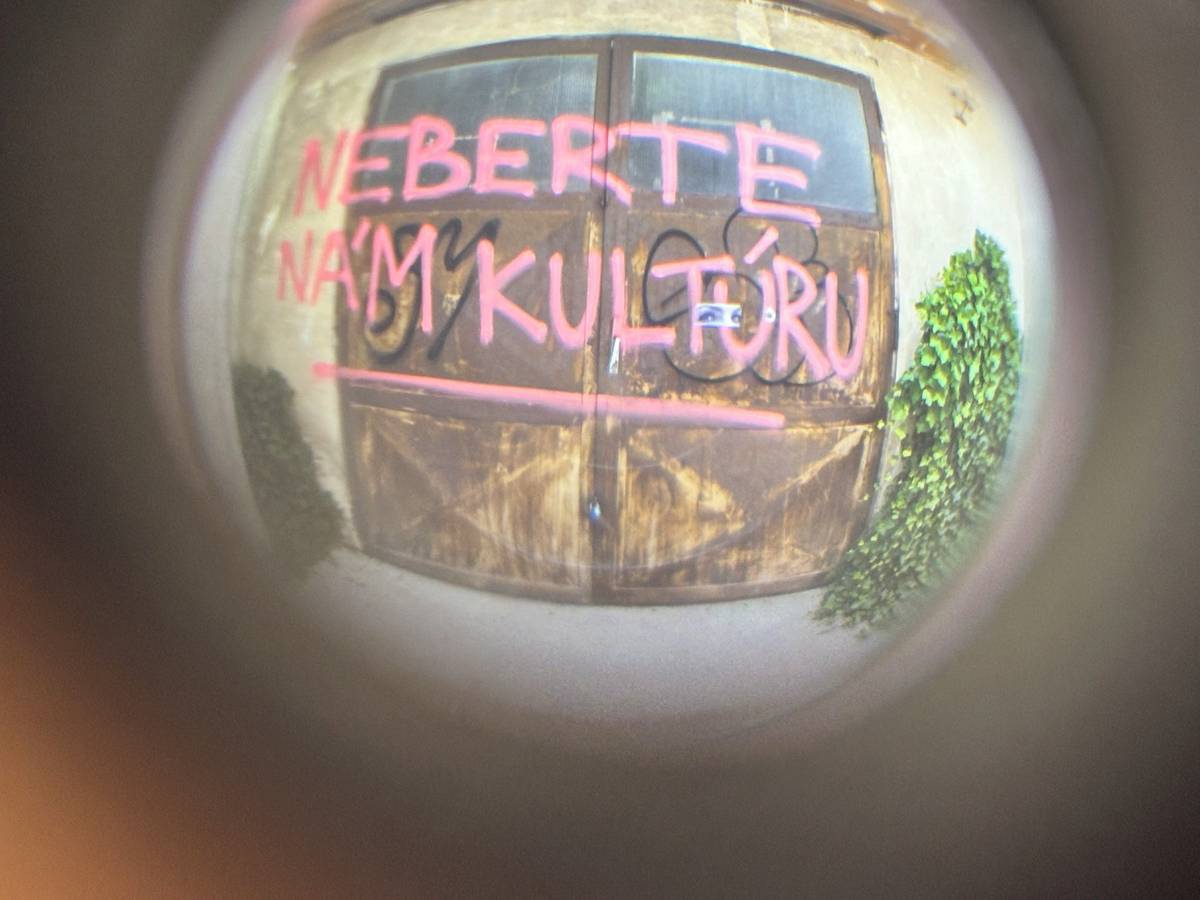 NEBERTE
NÁM KULTÚRU